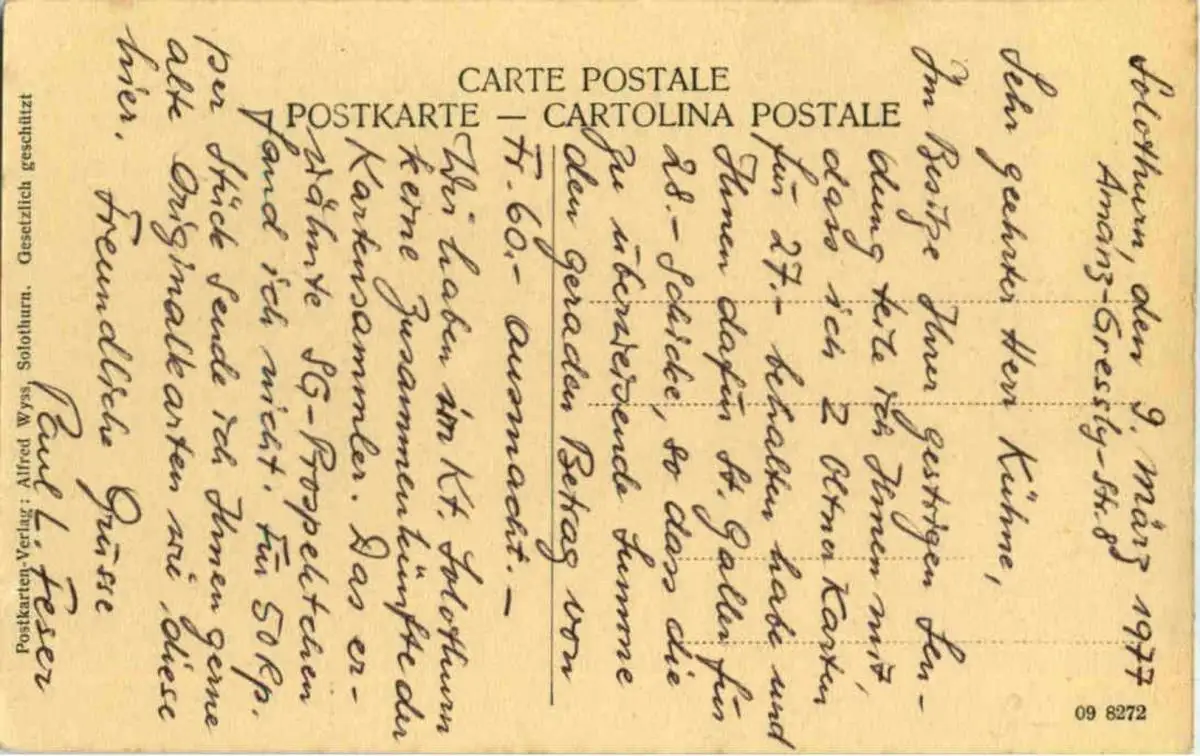 CARTE POSTALE
POSTKARTE — CARTOLINA POSTALE
Solothurn, den 9. März 1977
Amanz-Gressly-Str. 8
Sehr geehrter Herr Kühne,
Im Besitze Ihrer gestrigen Sen-
dung teile ich Ihnen mit,
dass ich 2 Oltner Karten
für 27.- behalten habe und
Ihnen dafür St. Galler für
28.- schicke, so dass die
zu überweisende Summe
den geraden Betrag von
Fr. 60.- ausmacht. —
Wir haben im Kt. Solothurn
keine Zusammenkünfte der
Kartensammler. Das er-
wähnte SG-Prospektchen
fand ich nicht. Für 50 Rp.
per Stück sende ich Ihnen gerne
alte Originalkarten wie diese
hier.
Freundliche Grüsse
Paul L. Feser
Postkarten-Verlag: Alfred Wyss, Solothurn. Gesetzlich geschützt
09 8272